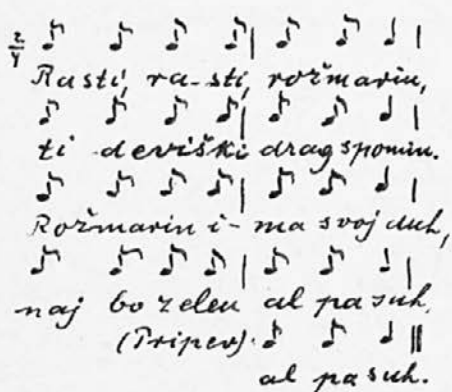 2/4
Rasti, ra-sti, rožmarin,
ti deviški drag spomin.
Rožmarin i-ma svoj duh,
naj bo zelen al pa suh.
(Pripev).
al pa suh.